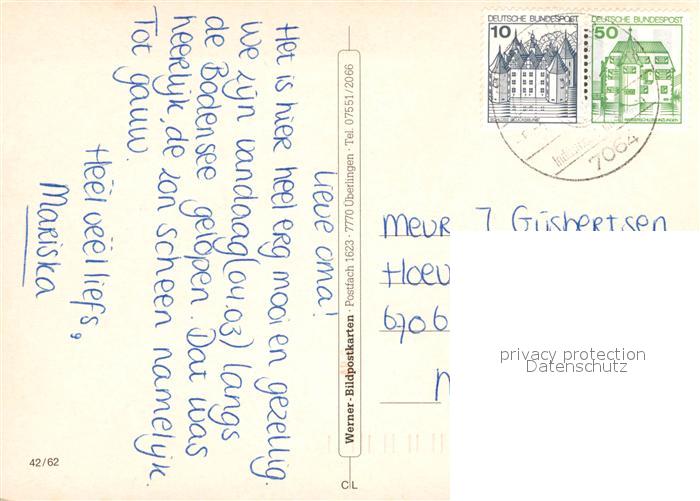 Lieve oma!
Het is hier heel erg mooi en gezellig.
We zijn vandaag (04.03) langs
de Bodensee gelopen. Dat was
heerlijk, de zon scheen namelijk.
Tot gauw.
Héél véél liefs,
Mariska
Werner-Bildpostkarten · Postfach 1623 · 7770 Überlingen · Tel. 07551/2066
DEUTSCHE BUNDESPOST
10
SCHLOSS GLÜCKSBURG
DEUTSCHE BUNDESPOST
50
WASSERSCHLOSS INZLINGEN
7064
Mevr J Gijsbertsen
Hoev
6706
N
privacy protection
Datenschutz
42/62
CL